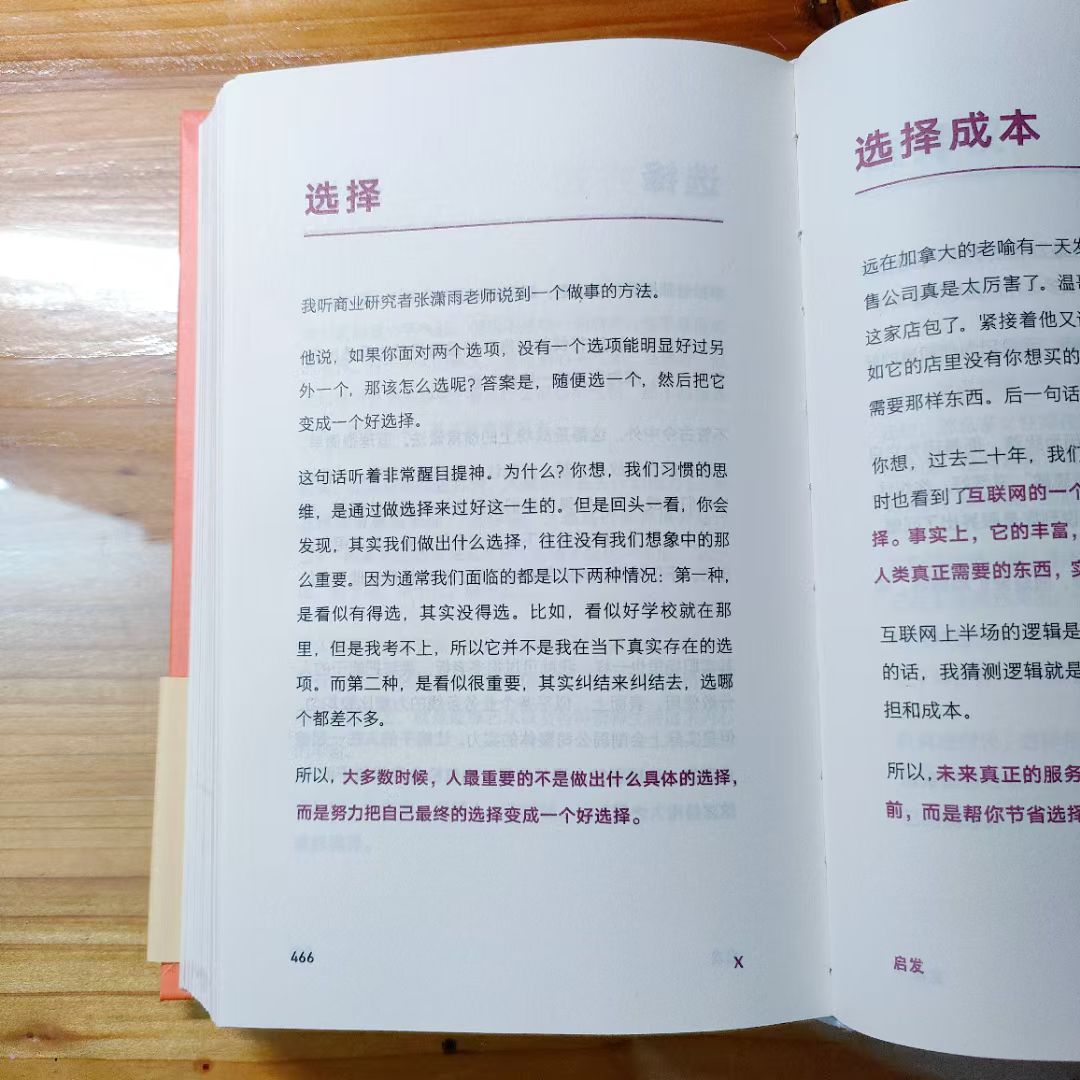 选择
我听商业研究者张潇雨老师说到一个做事的方法。
他说，如果你面对两个选项，没有一个选项能明显好过另
外一个，那该怎么选呢？答案是，随便选一个，然后把它
变成一个好选择。
这句话听着非常醒目提神。为什么？你想，我们习惯的思
维，是通过做选择来过好这一生的。但是回头一看，你会
发现，其实我们做出什么选择，往往没有我们想象中的那
么重要。因为通常我们面临的都是以下两种情况：第一种，
是看似有得选，其实没得选。比如，看似好学校就在那
里，但是我考不上，所以它并不是我在当下真实存在的选
项。而第二种，是看似很重要，其实纠结来纠结去，选哪
个都差不多。
所以，大多数时候，人最重要的不是做出什么具体的选择，
而是努力把自己最终的选择变成一个好选择。
466
X
选择成本
远在加拿大的老喻有一天发
售公司真是太厉害了。温哥
这家店包了。紧接着他又说
如它的店里没有你想买的
需要那样东西。后一句话
你想，过去二十年，我们
时也看到了互联网的一个
择。事实上，它的丰富，
人类真正需要的东西，实
互联网上半场的逻辑是
的话，我猜测逻辑就是
担和成本。
所以，未来真正的服务
前，而是帮你节省选择
启发